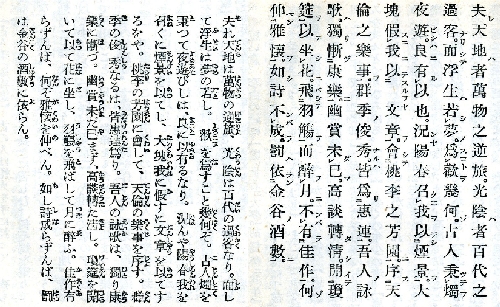 夫天地者萬物之逆旅。光陰者百代之
過客。而浮生若夢。爲歡幾何。古人秉燭
夜遊。良有以也。況陽春召我以煙景。大
塊假我以文章。會桃李之芳園。序天
倫之樂事。群季俊秀。皆爲惠連。吾人詠
歌。獨慚康樂。幽賞未已。高談轉清。開瓊
筵以坐花。飛羽觴而醉月。不有佳作。何
伸雅懷。如詩不成。罰依金谷酒數。
夫れ天地は萬物の逆旅、光陰は百代の過客なり。而し
て浮生は夢の若し、歡を爲すこと幾何ぞ。古人燭を
秉つて夜遊びしは、良に以有るなり。況んや陽春我を
召くに煙景を以てし、大塊我に假すに文章を以てす
るをや。桃李の芳園に會して、天倫の樂事を序す。群
季の俊秀なるは、皆惠連爲り。吾人の詠歌は、獨り康
樂に慚づ。幽賞未だ已まず、高談轉た清し。瓊筵を開
いて以て花に坐し、羽觴を飛ばして月に醉ふ。佳作有
らずんば、何ぞ雅懷を伸べん。如し詩成らずんば、罰
は金谷の酒數に依らん。